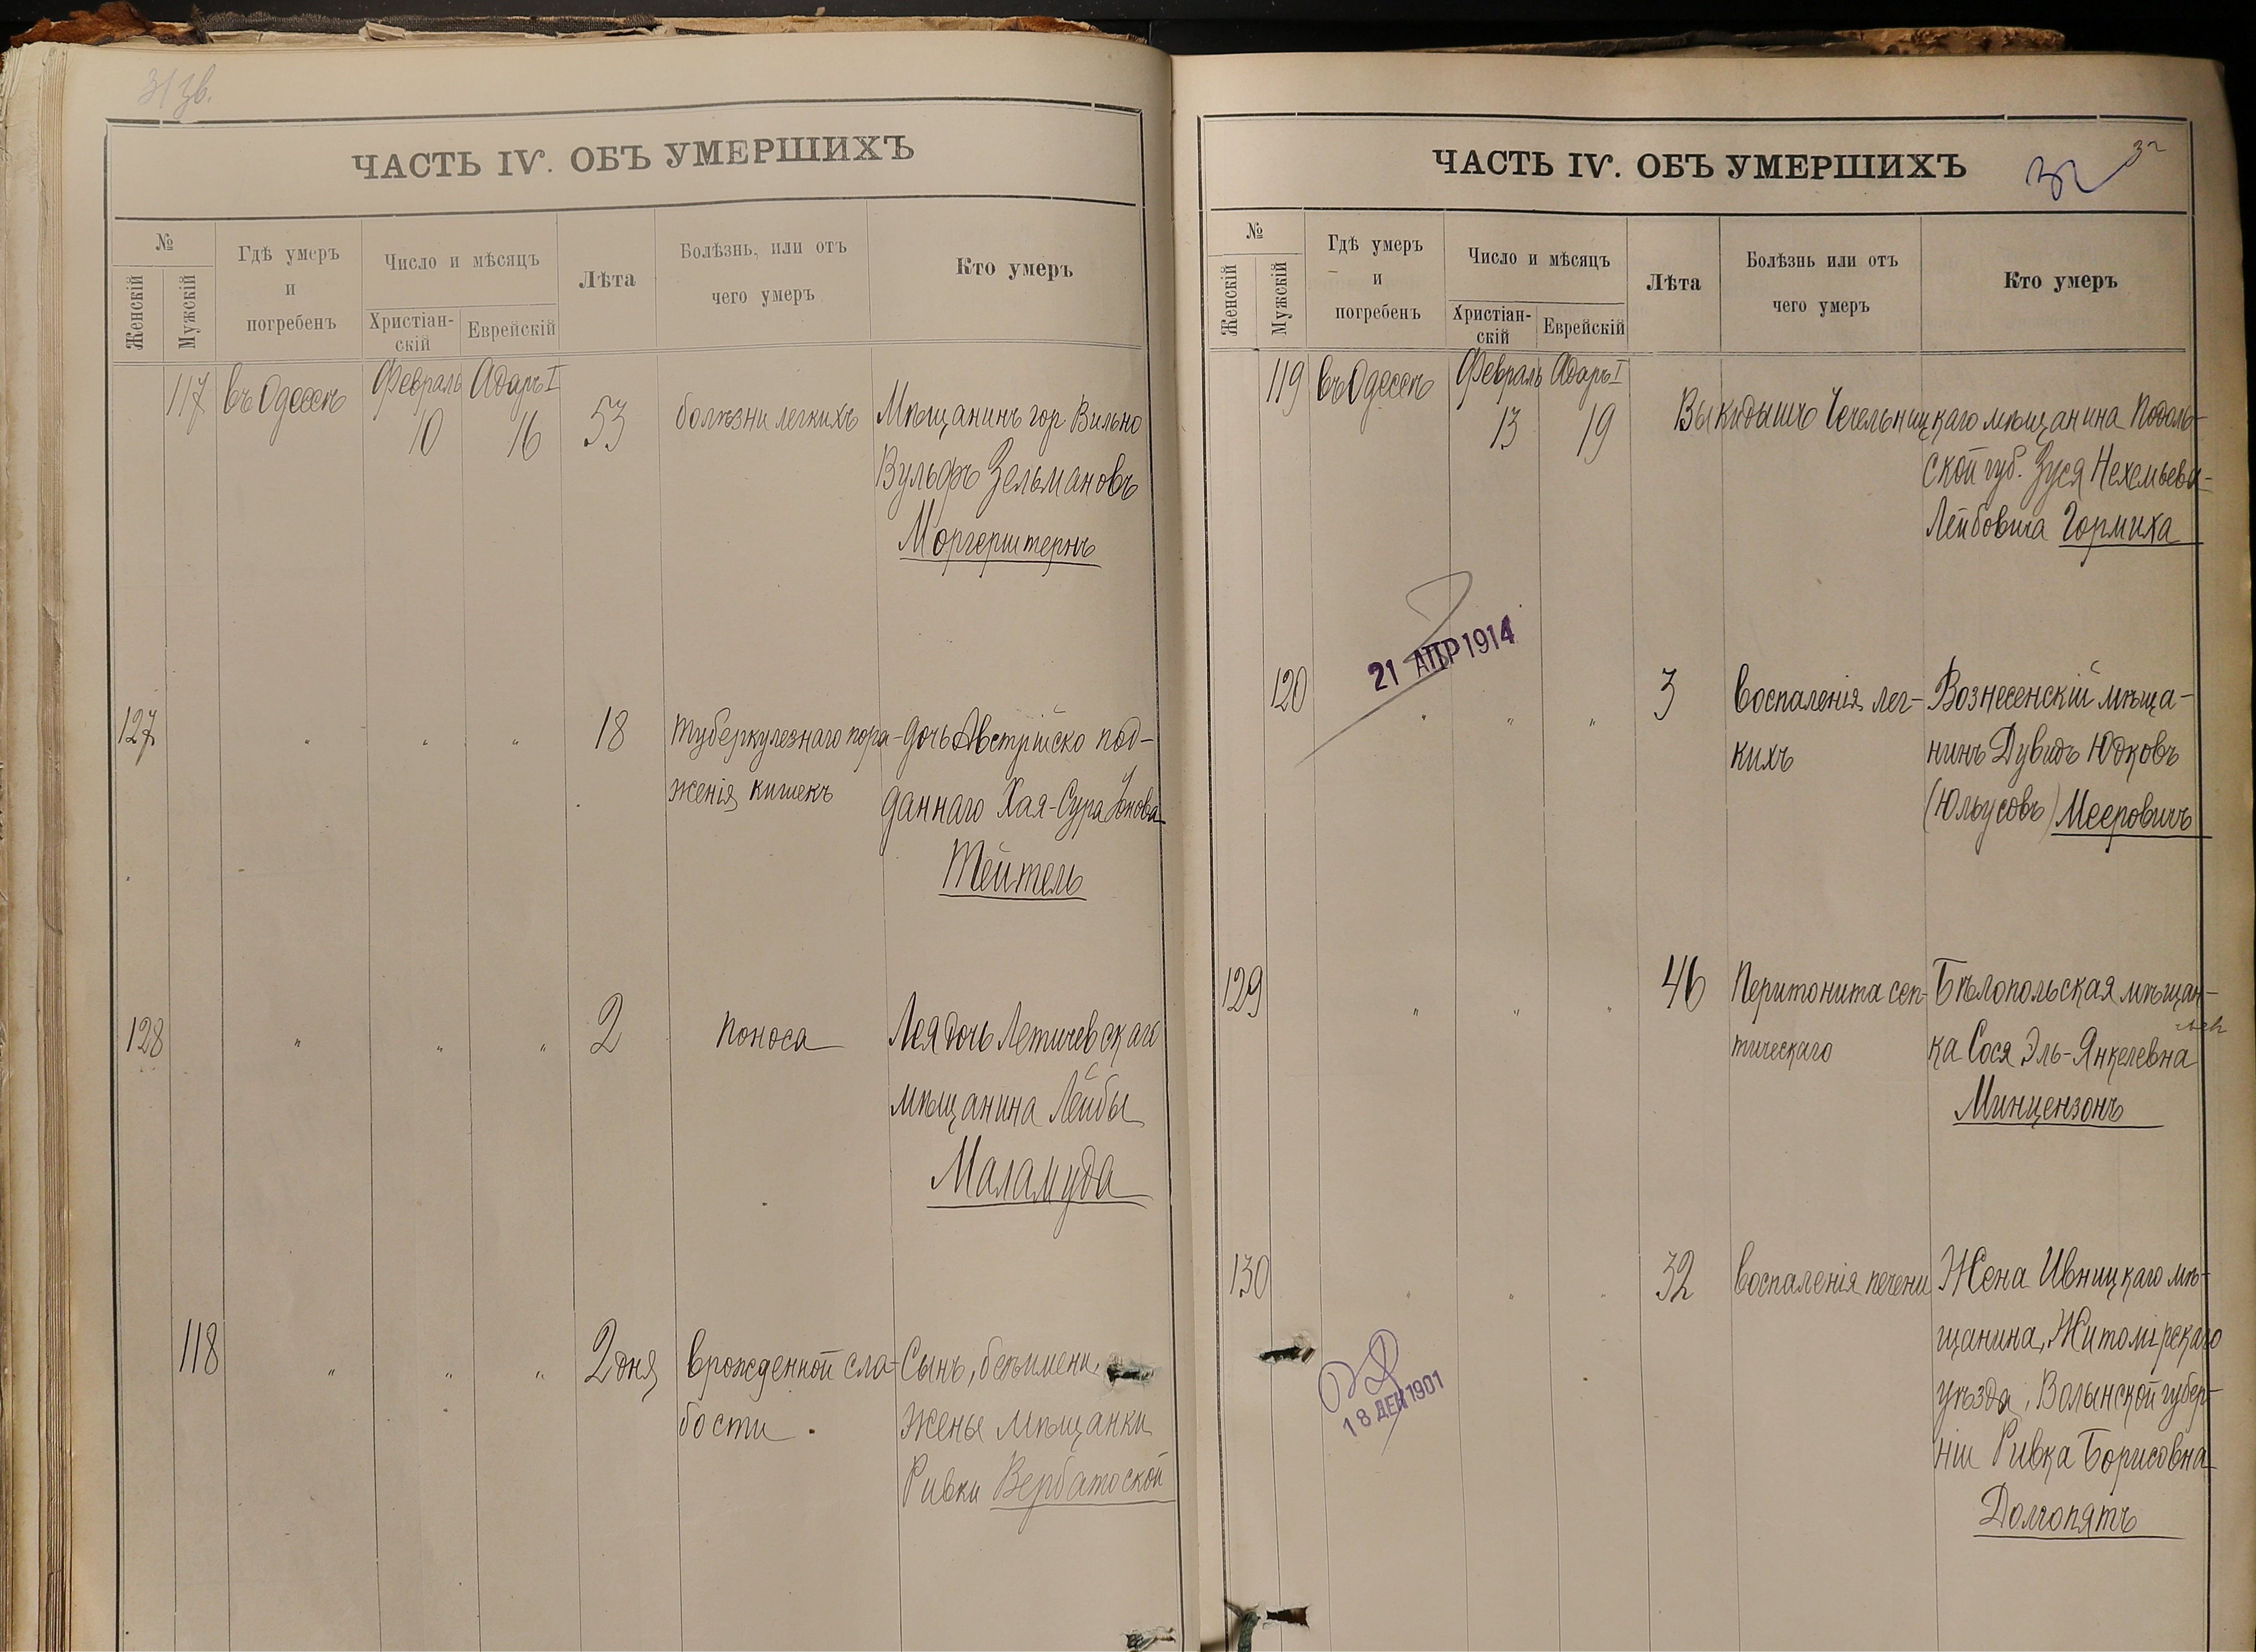 ЧАСТЬ IV. ОБЪ УМЕРШИХЪ
№
Женскій
Мужскій
Гдѣ умеръ
и
погребенъ
Число и мѣсяцъ
Христіан-
скій
Еврейскій
Лѣта
Болѣзнь, или отъ
чего умеръ
Кто умеръ
117 въ Одессѣ Февраль 10 Адаръ I 16 53 болѣзни легкихъ Мѣщанинъ гор Вильно
Вульфъ Зельмановъ
Моргерштернъ
127 " " " 18 Туберкулезнаго пора- дочь Австрійско под-
женія кишекъ даннаго Хая-Сура
Тейтель
128 " " " 2 Поноса Лея дочь Летичевскаго
мѣщанина Лейбы
Маламуда
118 " " " 2 дня врожденной сла- Сынъ, безъимени,
бости Женьі мѣщанки
Ривки Вербатоской
ЧАСТЬ IV. ОБЪ УМЕРШИХЪ
32
32
№
Женскій
Мужскій
Гдѣ умеръ
и
погребенъ
Число и мѣсяцъ
Христіан-
скій
Еврейскій
Лѣта
Болѣзнь или отъ
чего умеръ
Кто умеръ
119 въ Одессѣ Февраль 13 Адаръ I 19 Выкидышъ Чечельницкаго мѣщанина Подоль-
ской губ. Зуся Нехемьева-
Лейбовича Гормиха
21 АПР 1914
120 " " " 3 Воспаленія лег- Вознесенскій мѣща-
кихъ нинъ Дувидъ Юдковъ
(Юльусовъ) Мееровичъ
129 " " " 46 Перитонита сеп- Бѣлопольская мѣщан-
тическаго ка Сося Эль-Янкелевна
Минцензонъ
130 " " " 32 Воспаленія печени Жена Ивницкаго мѣ-
щанина, Житомірскаго
уѣзда, Волынской губер-
ніи Ривка Борисовна
Долгопятъ
18 ДЕК 1901